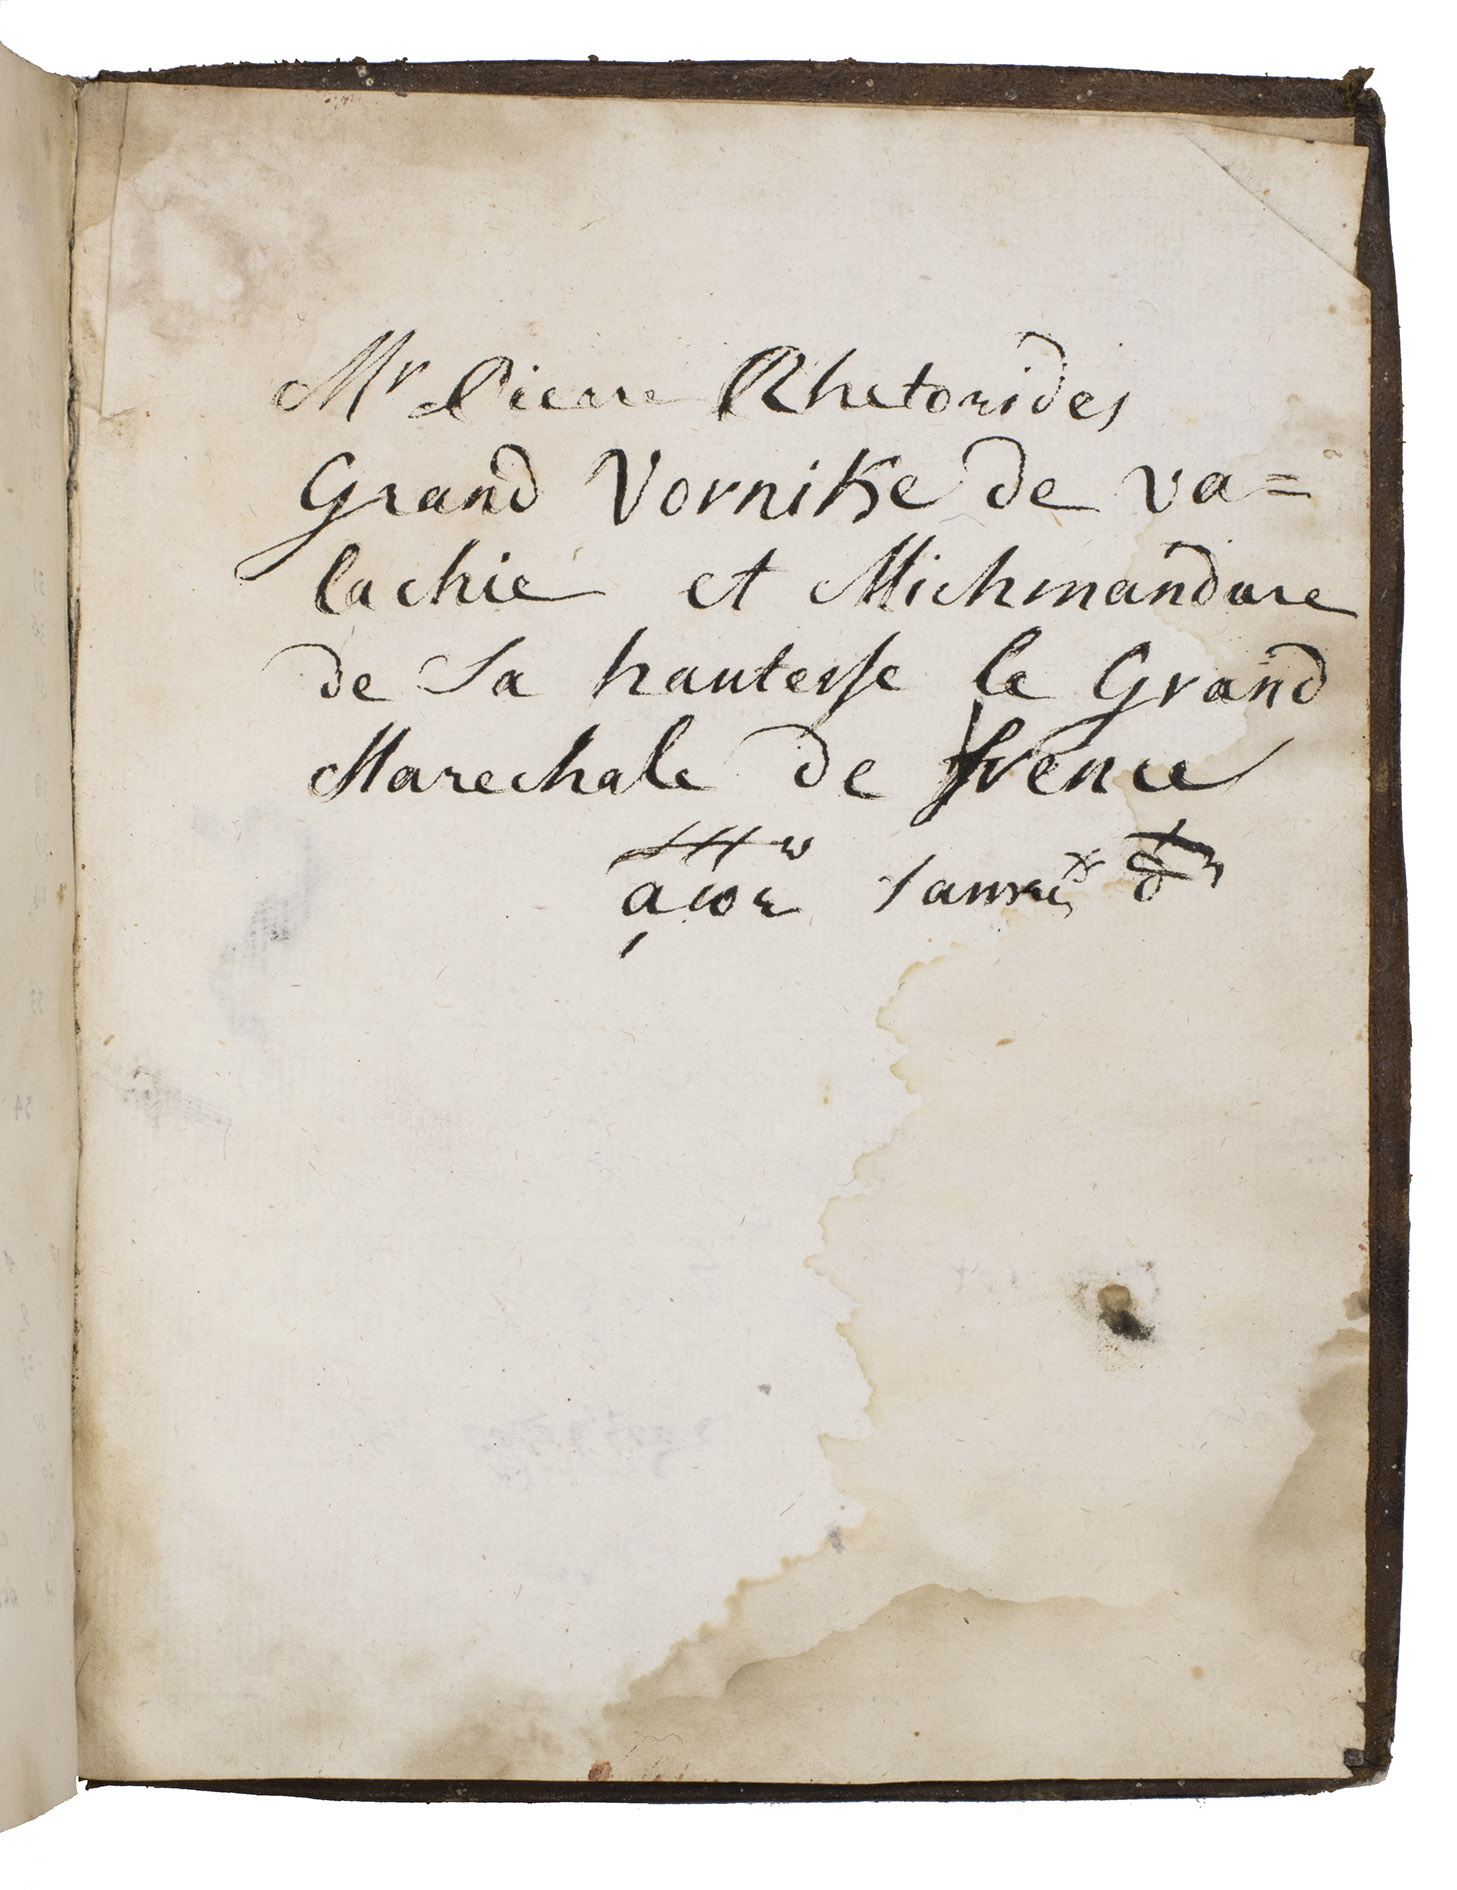 Mr Pierre Rhetorides
Grand Vornike de va=
lachie et Michmandare
de Sa hautesse le Grand
Marechale de frence